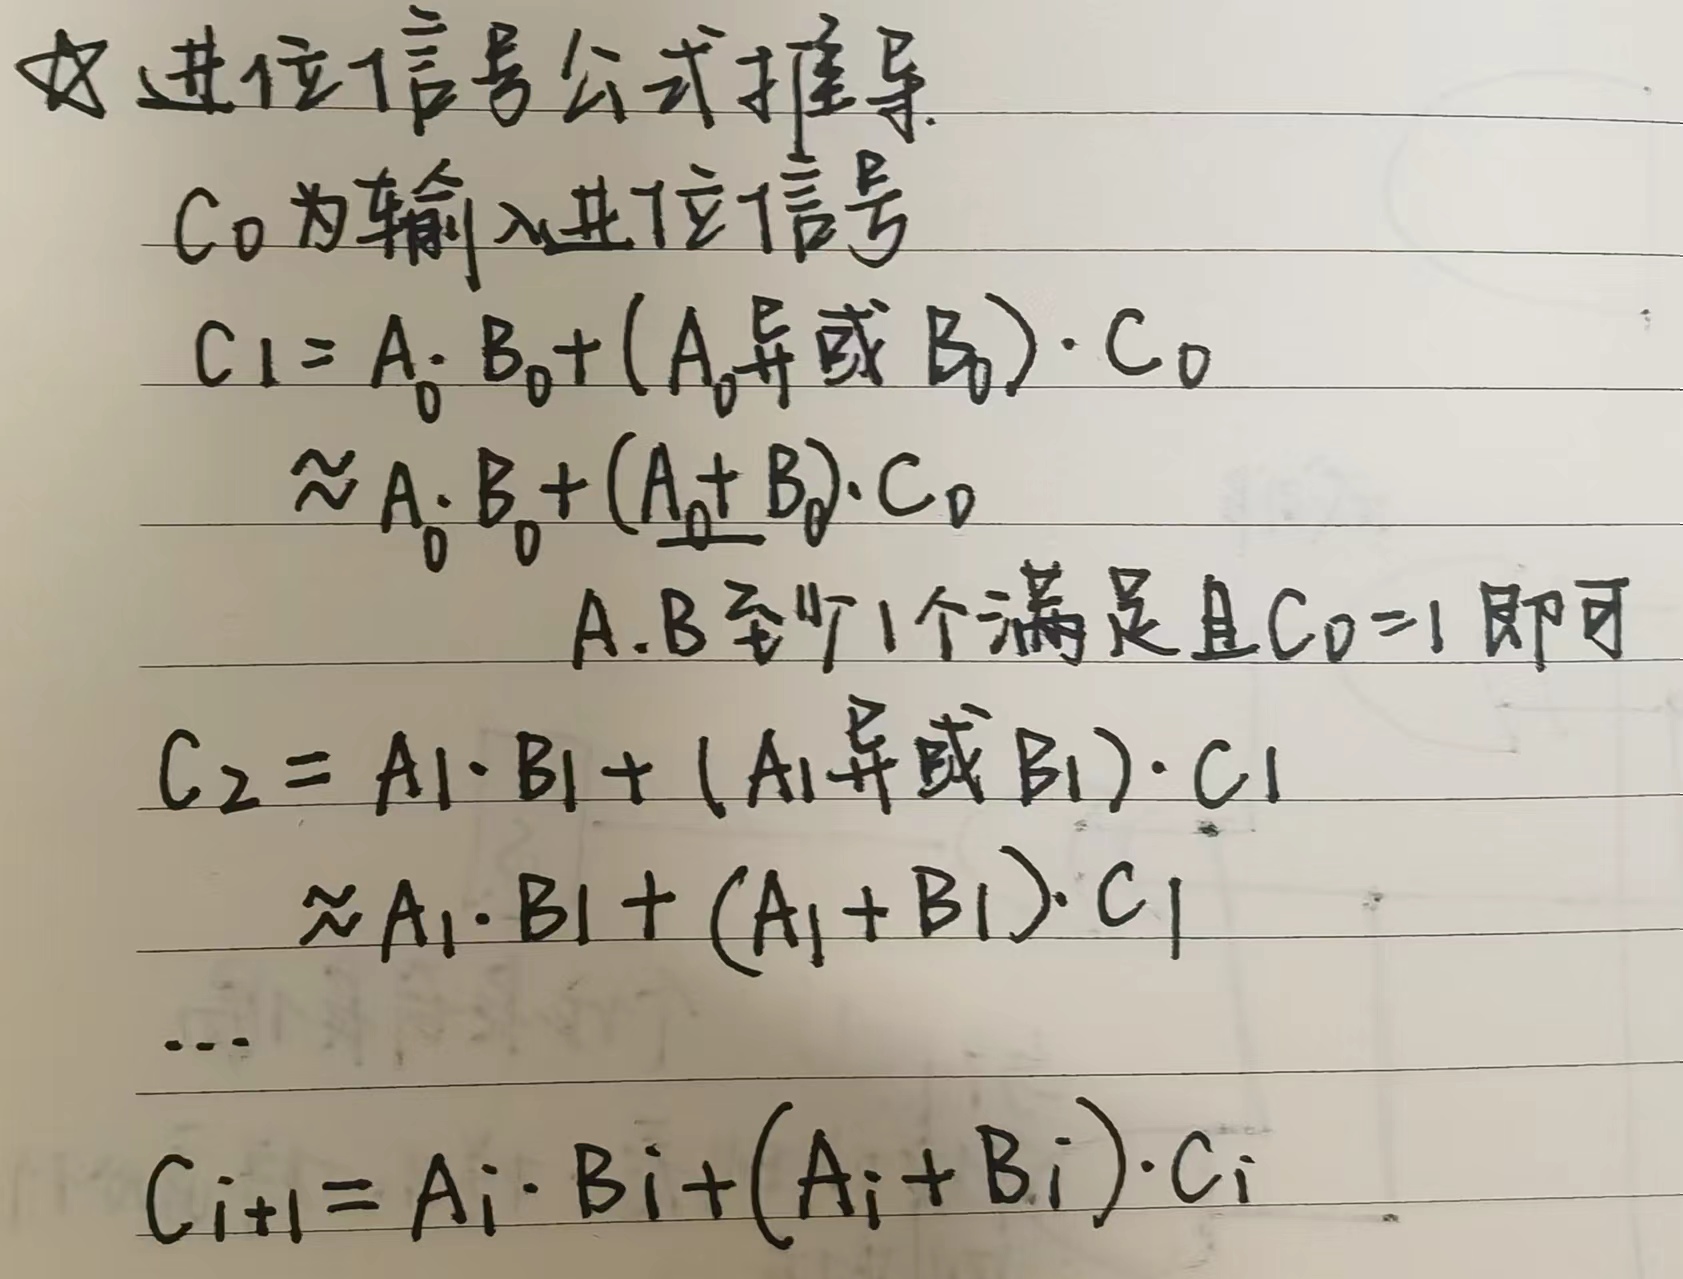 ☆ 进位信号公式推导.
C0为输入进位信号
C1 = A0·B0+(A0异或B0)·C0
≈A0·B0+(A0+B0)·C0
A.B至少1个满足且C0=1即可
C2 = A1·B1+(A1异或B1)·C1
≈A1·B1+(A1+B1)·C1
...
Ci+1=Ai·Bi+(Ai+Bi)·Ci